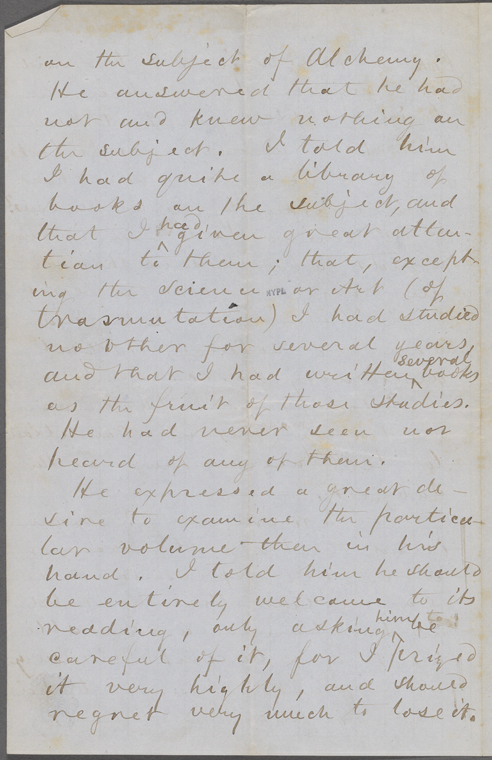 on the subject of Alchemy.
He answered that he had
not and knew nothing on
the subject. I told him
I had quite a library of
books on the subject, and
that I had given great atten-
tion to them; that, except-
ing the science or Art (of
NYPL
trasmutation) I had studied
no other for several years,
and that I had written several books
as the fruit of those studies.
He had never seen nor
heard of any of them.
He expressed a great de-
sire to examine the particu-
lar volume then in his
hand. I told him he should
be entirely welcome to its
reading, only asking him to be
careful of it, for I prized
it very highly, and should
regret very much to lose it.